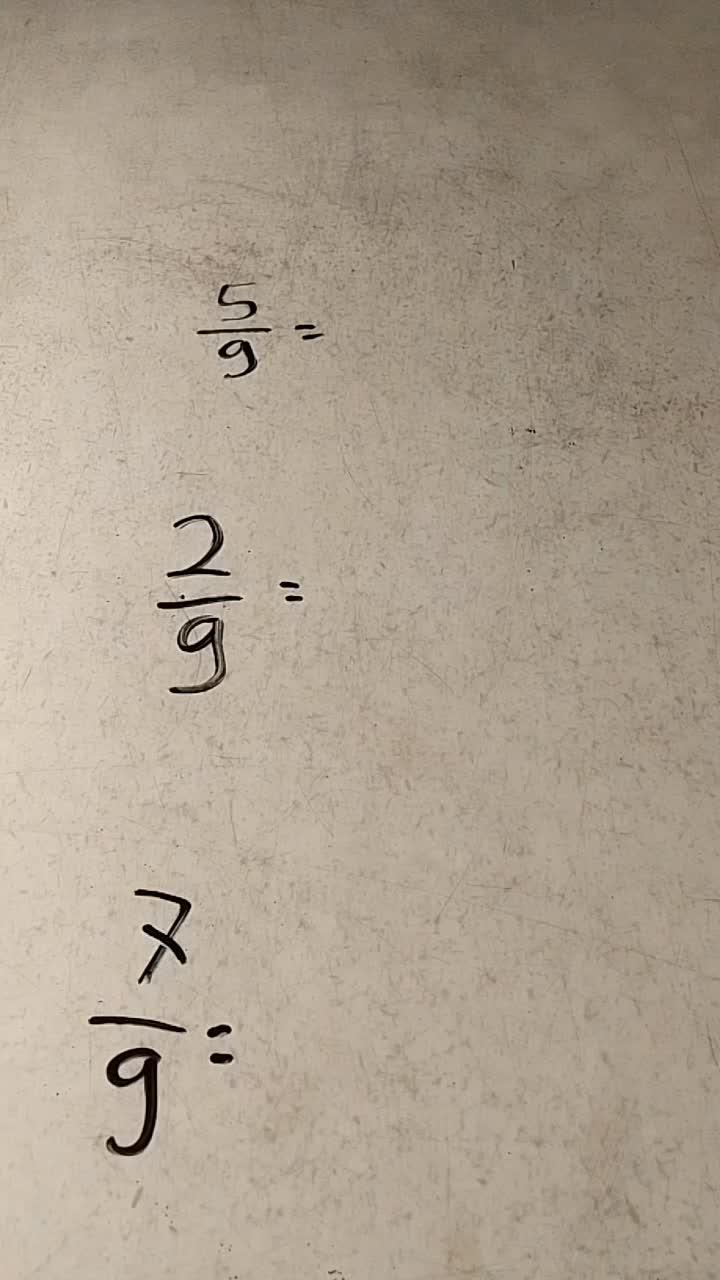 5/9 =
2/9 =
7/9 =